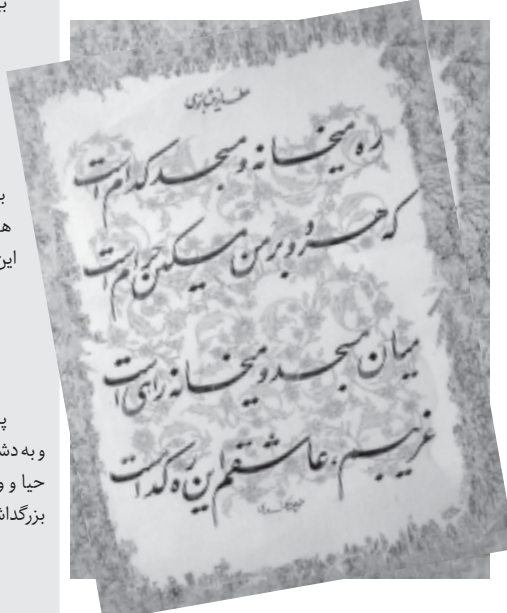 عطار نیشابوری
ره میخانه و مسجد کدام است
که هر دو بر من مسکین حرام است
میان مسجد و میخانه راهی است
غریبم، عاشقم این ره کدام است
این
و به دش
حیا و و
بزرگداش